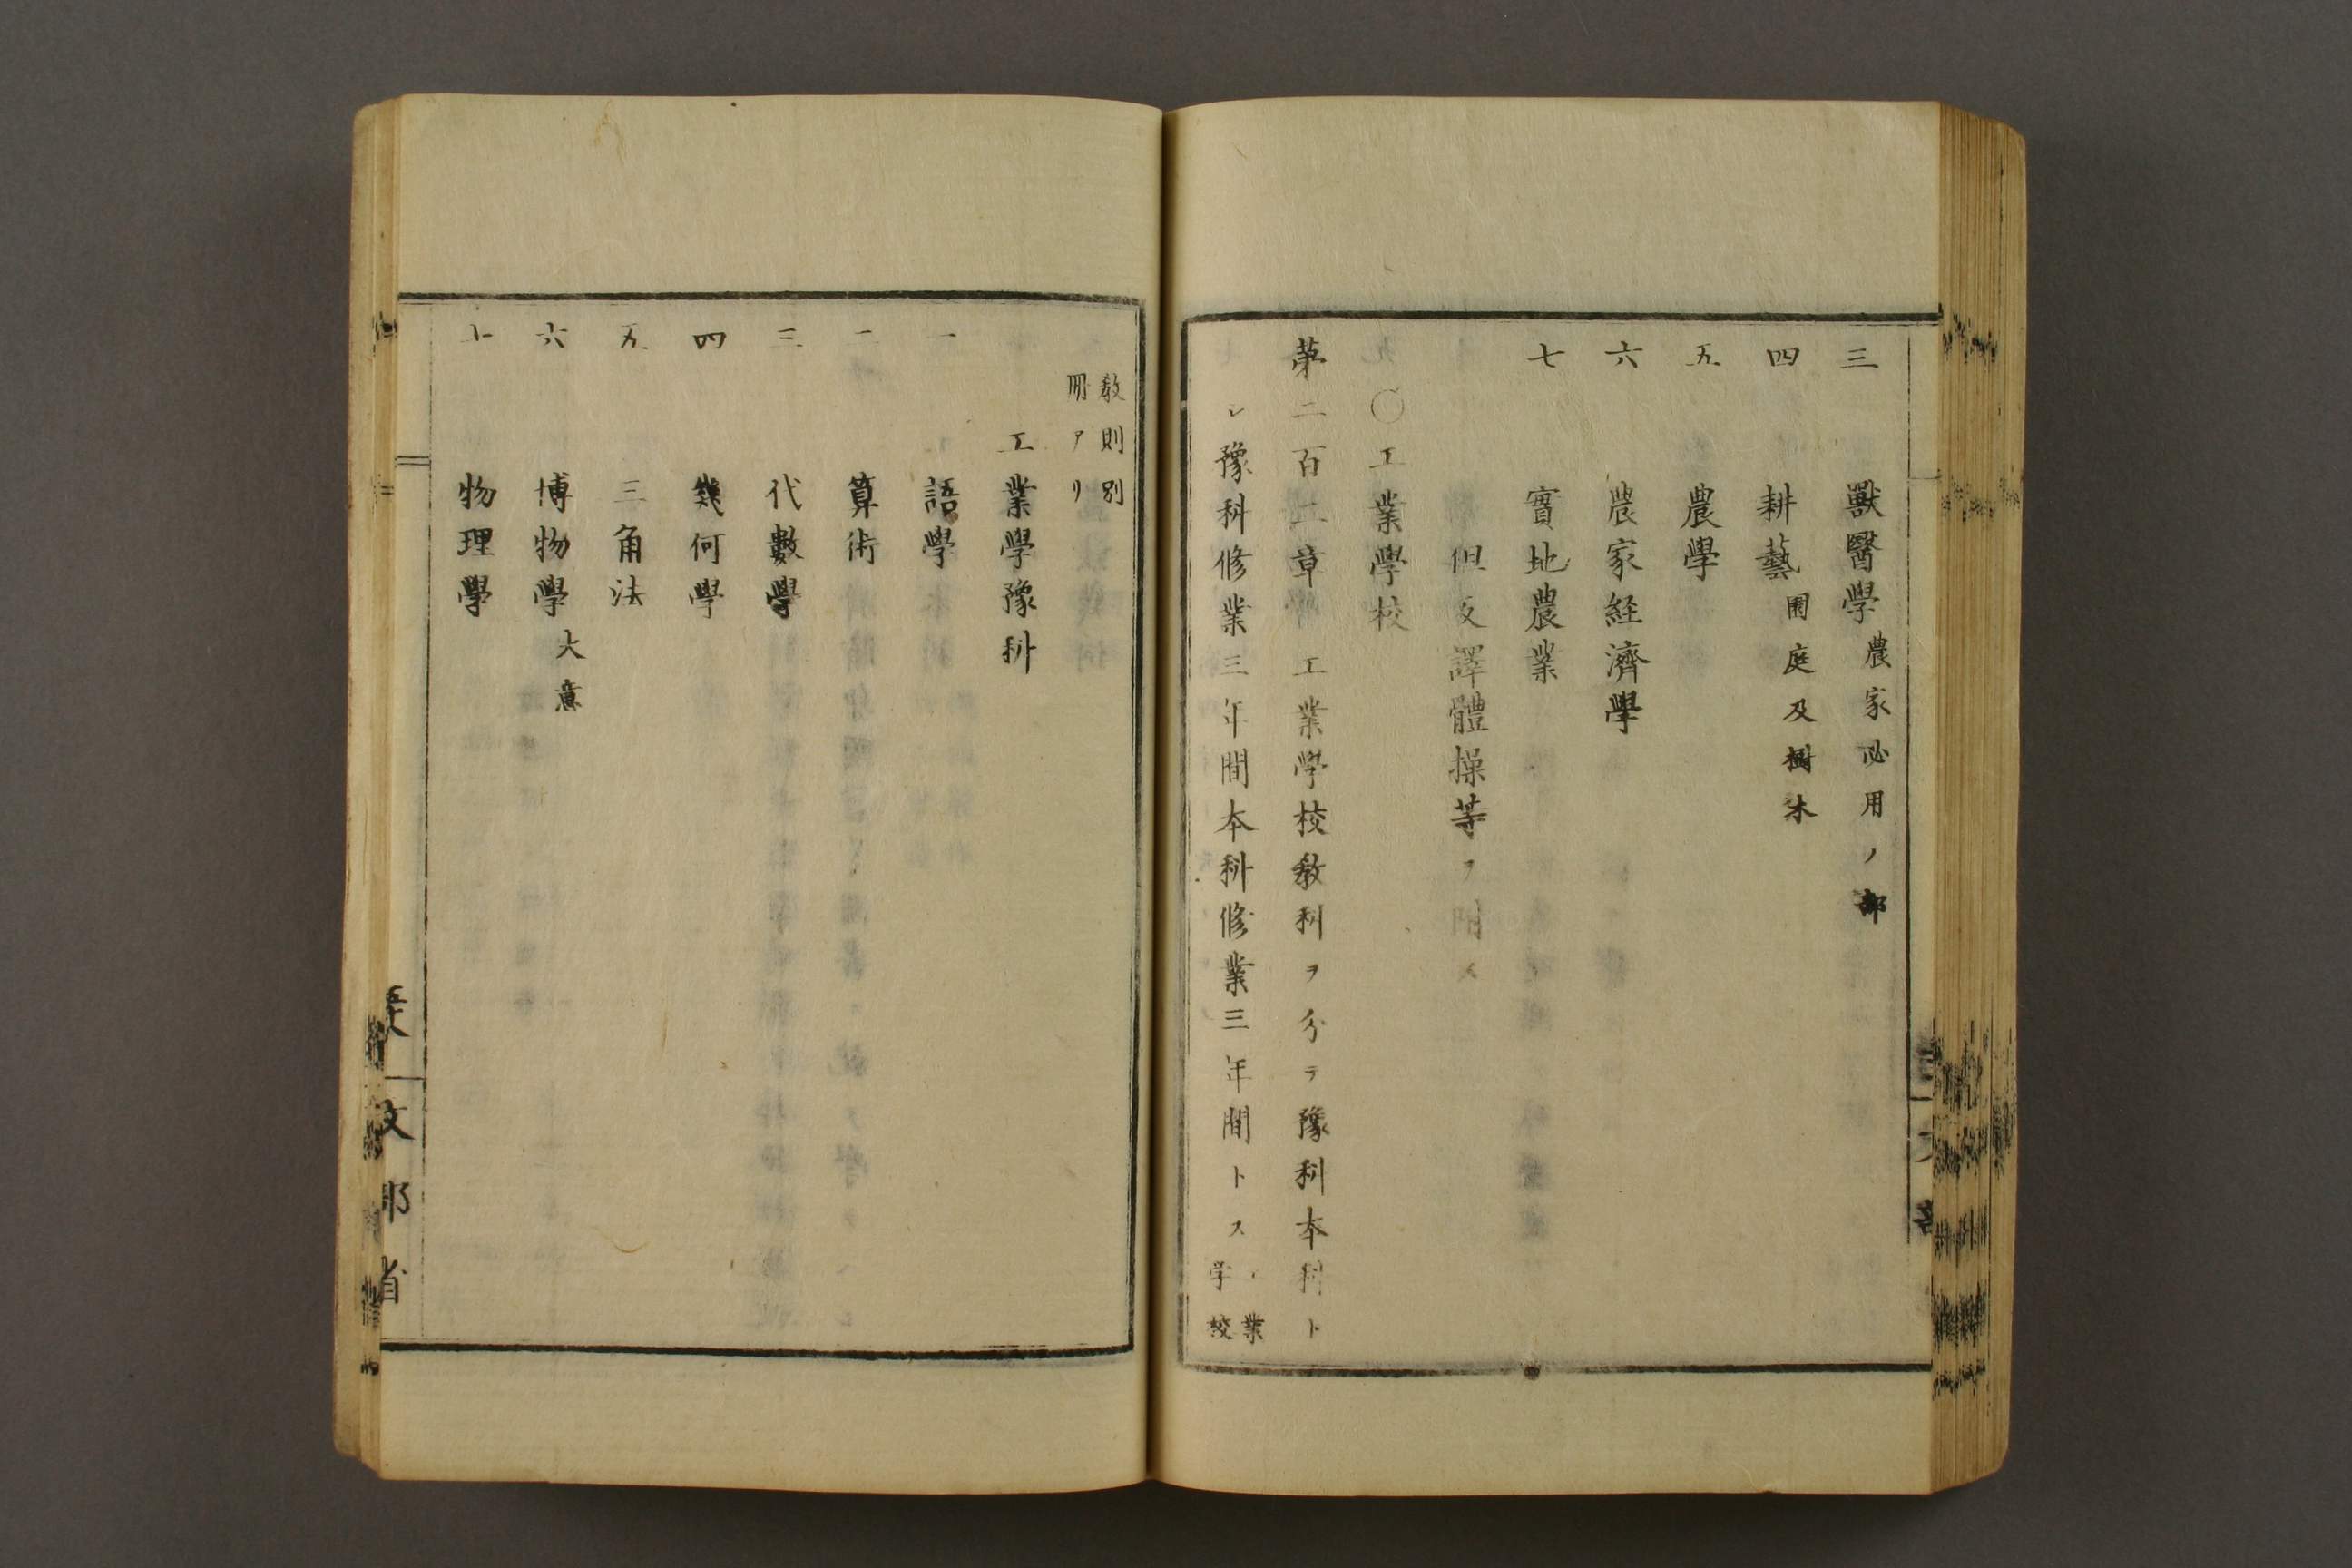 三 獸醫學農家必用ノ部
四 耕藝園庭及樹木
五 農學
六 農家経濟學
七 實地農業
但反譯體操等ヲ附ス
〇工業學校
第二百二章 工業學校教科ヲ分ケテ豫科本科ト
シ豫科修業三年間本科修業三年間トス
業
学校
教則別
冊アリ
工業學豫科
一 語學
二 算術
三 代數學
四 幾何學
五 三角法
六 博物學大意
七 物理學
文部省